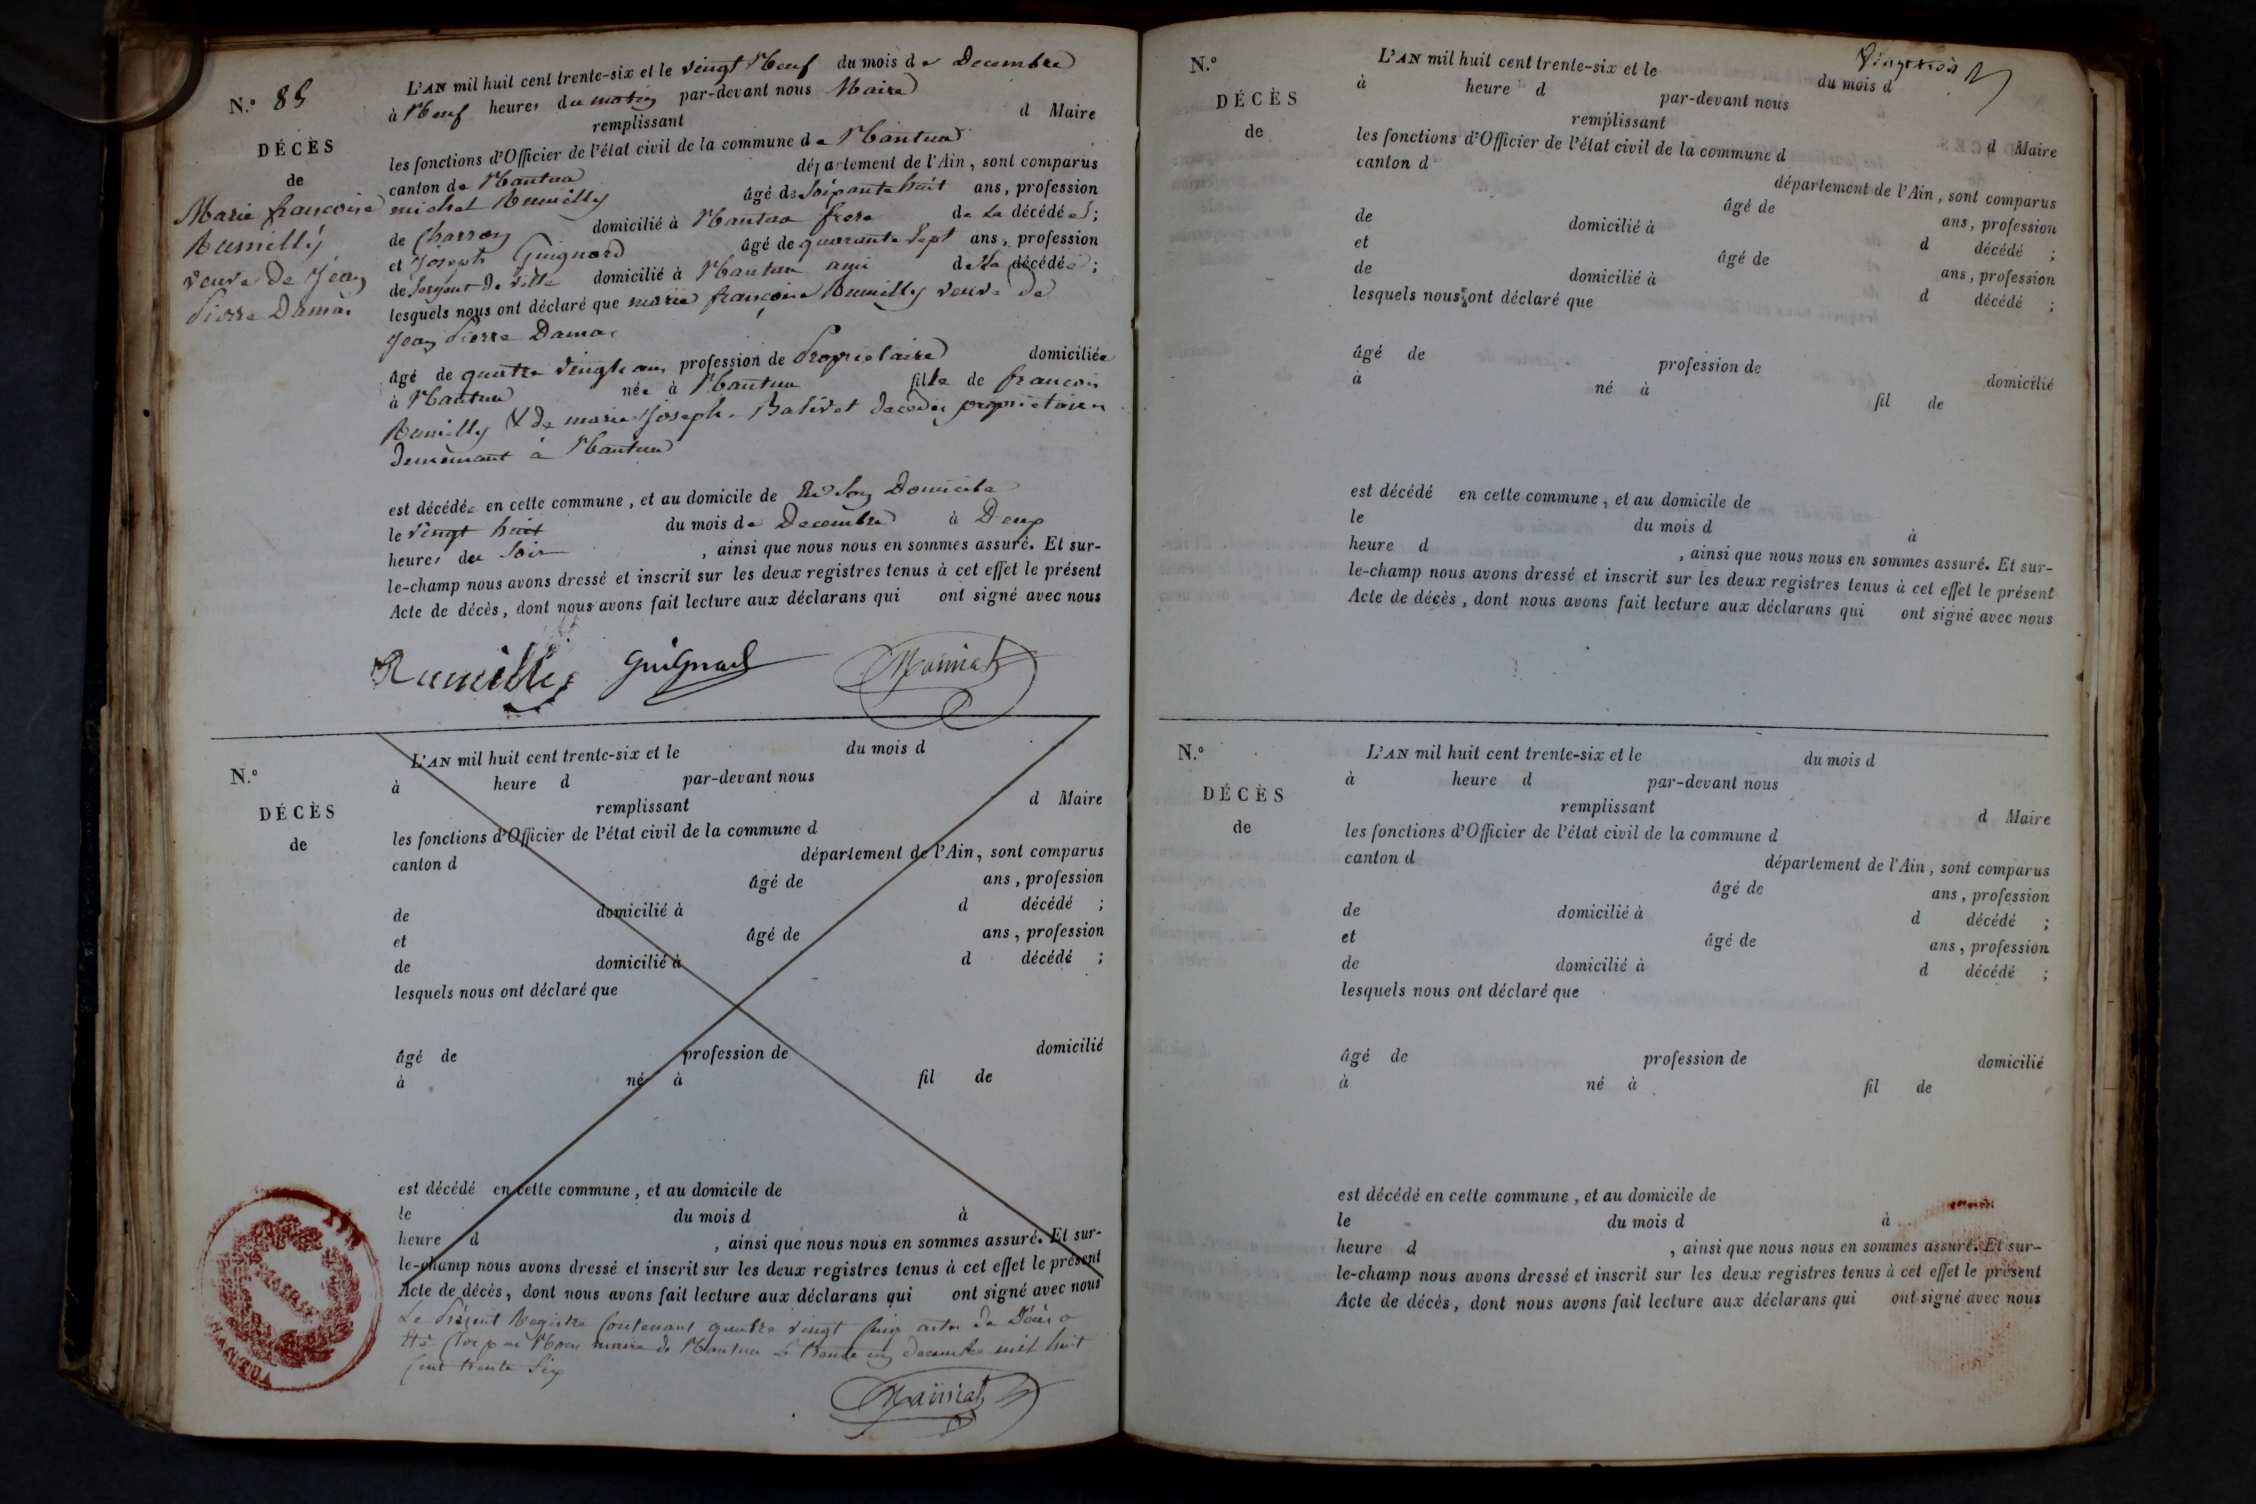 N.º 85
DÉCÈS
de
Marie françoise
Rumilly
veuve de Jean
Pierre Damas
L'AN mil huit cent trente-six et le vingt Neuf du mois de Decembre
à Neuf heures du matin par-devant nous Maire
remplissant d Maire
les fonctions d'Officier de l'état civil de la commune de Nantua
canton de Nantua département de l'Ain, sont comparus
michel Rumilly âgé de Soixante huit ans, profession
de Charron domicilié à Nantua frere de La décédée;
et Joseph Guignard âgé de quarante Sept ans, profession
de Sergent de ville domicilié à Nantua ami de La décédée;
lesquels nous ont déclaré que marie françoise Rumilly veuve de
Jean Pierre Damas
âgé de quatre vingts ans profession de Propriétaire domiciliée
à Nantua née à Nantua fille de francois
Rumilly & de marie Joseph Balivet décédés propriétaires
demeurant à Nantua
est décédée en cette commune, et au domicile de de Son Domicile
le vingt huit du mois de Decembre à Deux
heures du Soir, ainsi que nous nous en sommes assuré. Et sur-
le-champ nous avons dressé et inscrit sur les deux registres tenus à cet effet le présent
Acte de décès, dont nous avons fait lecture aux déclarans qui ont signé avec nous
Rumilly Guignard
N.º
DÉCÈS
de
L'AN mil huit cent trente-six et le du mois d
à heure d par-devant nous
remplissant d Maire
les fonctions d'Officier de l'état civil de la commune d
canton d département de l'Ain, sont comparus
âgé de ans, profession
de domicilié à d décédé ;
et âgé de ans, profession
de domicilié à d décédé ;
lesquels nous ont déclaré que
âgé de profession de domicilié
à né à fil de
est décédé en cette commune, et au domicile de
le du mois d à
heure d , ainsi que nous nous en sommes assuré. Et sur-
le-champ nous avons dressé et inscrit sur les deux registres tenus à cet effet le présent
Acte de décès, dont nous avons fait lecture aux déclarans qui ont signé avec nous
Le Présent Registre Contenant quatre vingt Cinq actes de Décès a
été Clos par Nous maire de Nantua Le trente un decembre mil huit
Cent trente Six
MAIRIE
NANTUA
Vingt trois
N.º
DÉCÈS
de
L'AN mil huit cent trente-six et le du mois d
à heure d par-devant nous
remplissant d Maire
les fonctions d'Officier de l'état civil de la commune d
canton d département de l'Ain, sont comparus
âgé de ans, profession
de domicilié à d décédé ;
et âgé de ans, profession
de domicilié à d décédé ;
lesquels nous ont déclaré que
âgé de profession de domicilié
à né à fil de
est décédé en cette commune, et au domicile de
le du mois d à
heure d , ainsi que nous nous en sommes assuré. Et sur-
le-champ nous avons dressé et inscrit sur les deux registres tenus à cet effet le présent
Acte de décès, dont nous avons fait lecture aux déclarans qui ont signé avec nous
N.º
DÉCÈS
de
L'AN mil huit cent trente-six et le du mois d
à heure d par-devant nous
remplissant d Maire
les fonctions d'Officier de l'état civil de la commune d
canton d département de l'Ain, sont comparus
âgé de ans, profession
de domicilié à d décédé ;
et âgé de ans, profession
de domicilié à d décédé ;
lesquels nous ont déclaré que
âgé de profession de domicilié
à né à fil de
est décédé en cette commune, et au domicile de
le du mois d à
heure d , ainsi que nous nous en sommes assuré. Et sur-
le-champ nous avons dressé et inscrit sur les deux registres tenus à cet effet le présent
Acte de décès, dont nous avons fait lecture aux déclarans qui ont signé avec nous